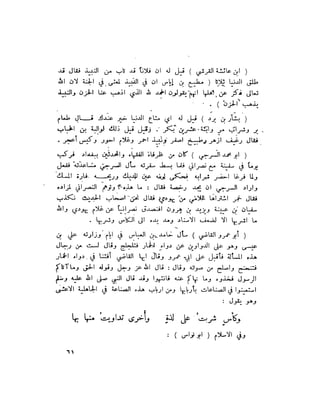 ( ابن عائشة القرشي ) قيل له ان فلاناً قد تاب من النبيذ فقال قد
طلق الدنيا ثلاثا ( مطيع بن إياس ان في النبيذ لمعنى في الجنة لان الله
تعالى ذكر عن اهلها انهم يقولون الحمد لله الذي اذهب عنا الحزن والنبيذ
يذهب الحزن ) .
( بشار بن برد ) قيل له اي متاع الدنيا خير عندك قال طعام
بر وشراب مر وابنة عشرين بكر . وقيل قيل ذلك لوالبة بن الحباب
فقال رغيف ازهر وطبيخ اصفر ونبيذ احمر وغلام احور وكيس أعجر .
( ابو محمد السرجي ) كان من ظرفاء الفقهاء والمحدثين ببغداد فركب
يوماً في سفينة مع نصراني فلما بسط سفرته سأل السرجي مساعدته ففعل
ولما فرغا احضر شرابه فحكى لونه عين الديك وريحه فارة المسك
واراد السرجي ان يجد رخصة فقال : ما هذه ؟ وتوهم النصراني لمراده
فقال خمر اشتراها غلامي من يهودي فقال نحن اصحاب الحديث نكذب
سفيان بن عيينة ويزيد بن هرون افنصدق نصرانياً عن غلام يهودي والله
ما اشربها الا لضعف الاسناد ومد يده الى الكاس وشربها .
( أبو عمرو القاضي ) سأل حامد بن العباس في ايام وزارته علي بن
عيسى وهو على الدواوين عن دواء الخمار فتلجلج وقال لست من رجال
هذه المسألة فأقبل على ابي عمرو وقال ايها القاضي أفتنا في دواء الخمار
فتنحنح واصلح من صوته وقال : قال الله عز وجل وقوله الحق وما آتاكم
الرسول فخذوه وما نهاكم عنه فانتهوا وقد قال النبي صلى الله عليه وسلم
استعينوا في الصناعات بأربابها ومن ارباب هذه الصناعة في الجاهلية الاعشى
وهو يقول :
وكأس شربت على لذة وأخرى تداويت منها بها
وفي الاسلام ( ابو نواس ) :
٦١